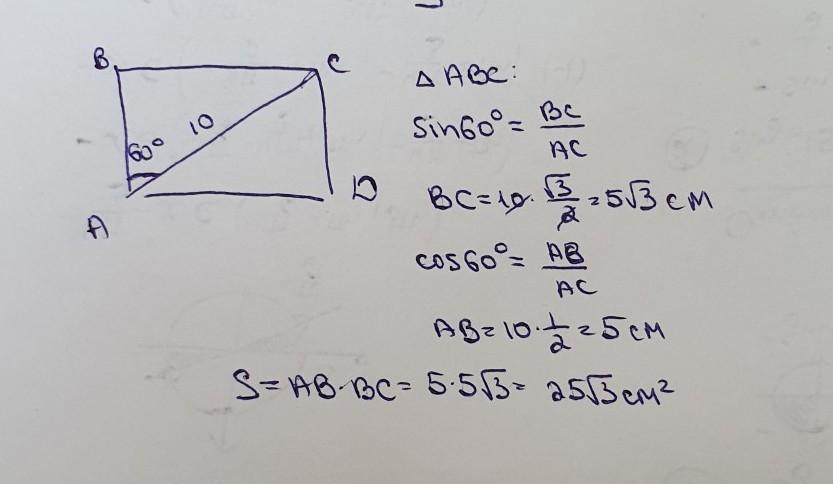 B
C
60° 10
A
D
△ ABC:
Sin60° = BC/AC
BC = 10 · √3/2 = 5√3 см
cos60° = AB/AC
AB = 10 · 1/2 = 5 см
S = AB · BC = 5 · 5√3 = 25√3 см²